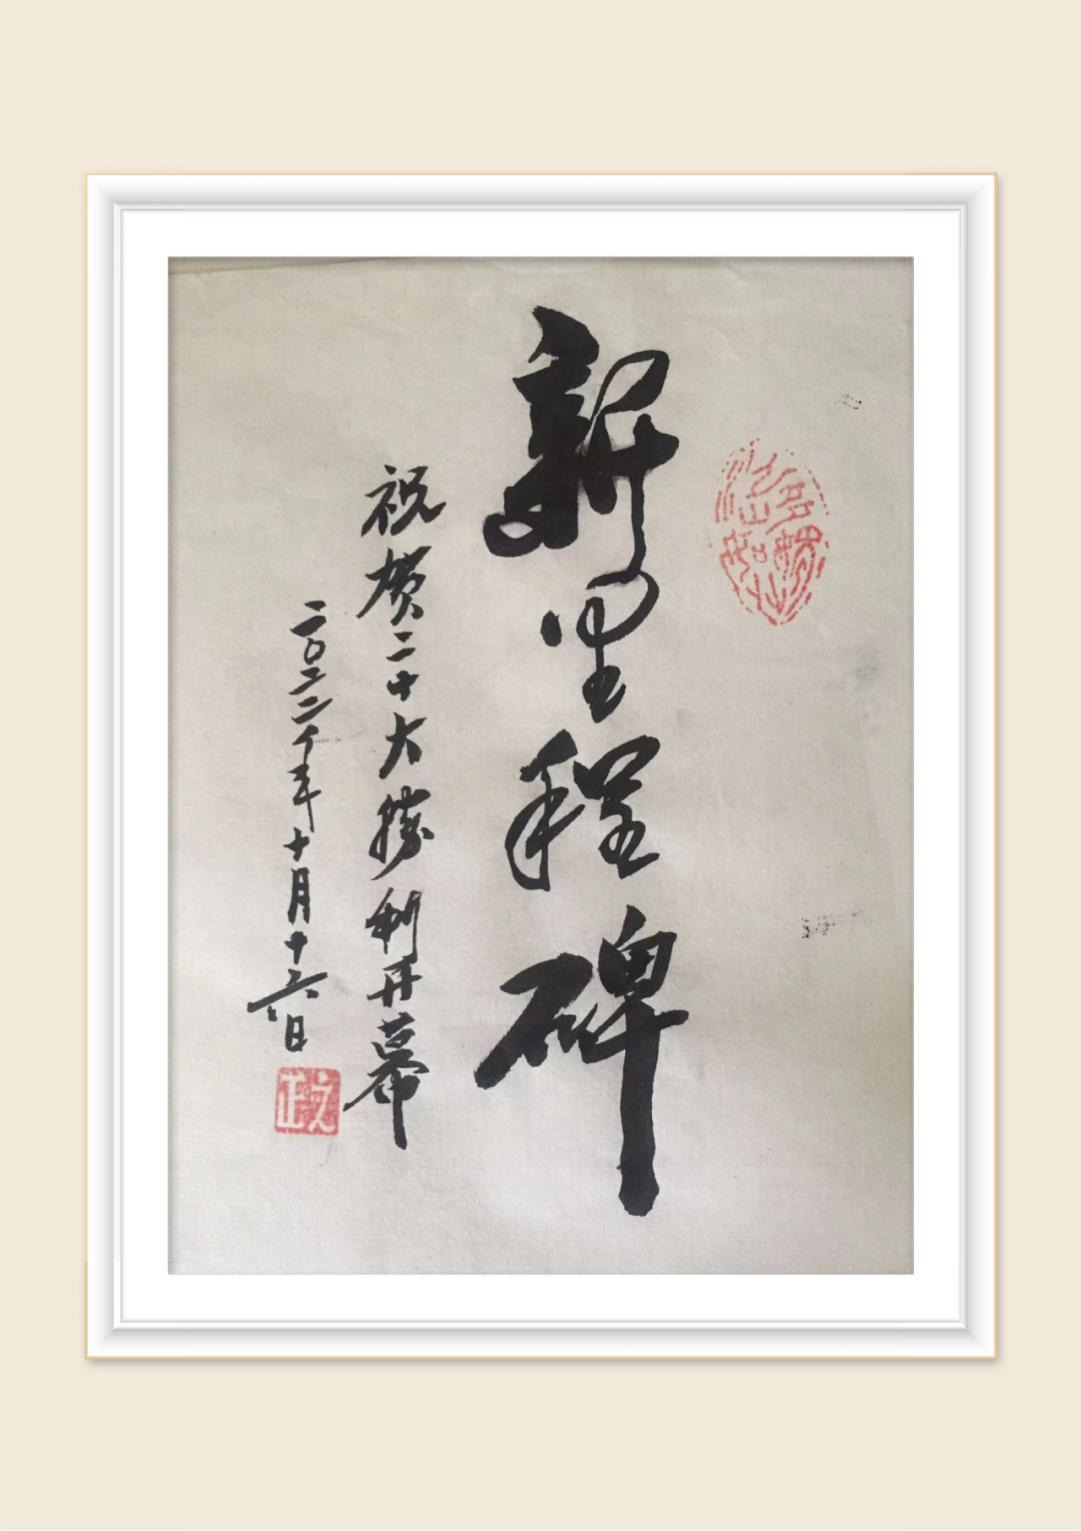 新里程碑
祝贺二十大勝利开幕
二〇二二年十月十六日